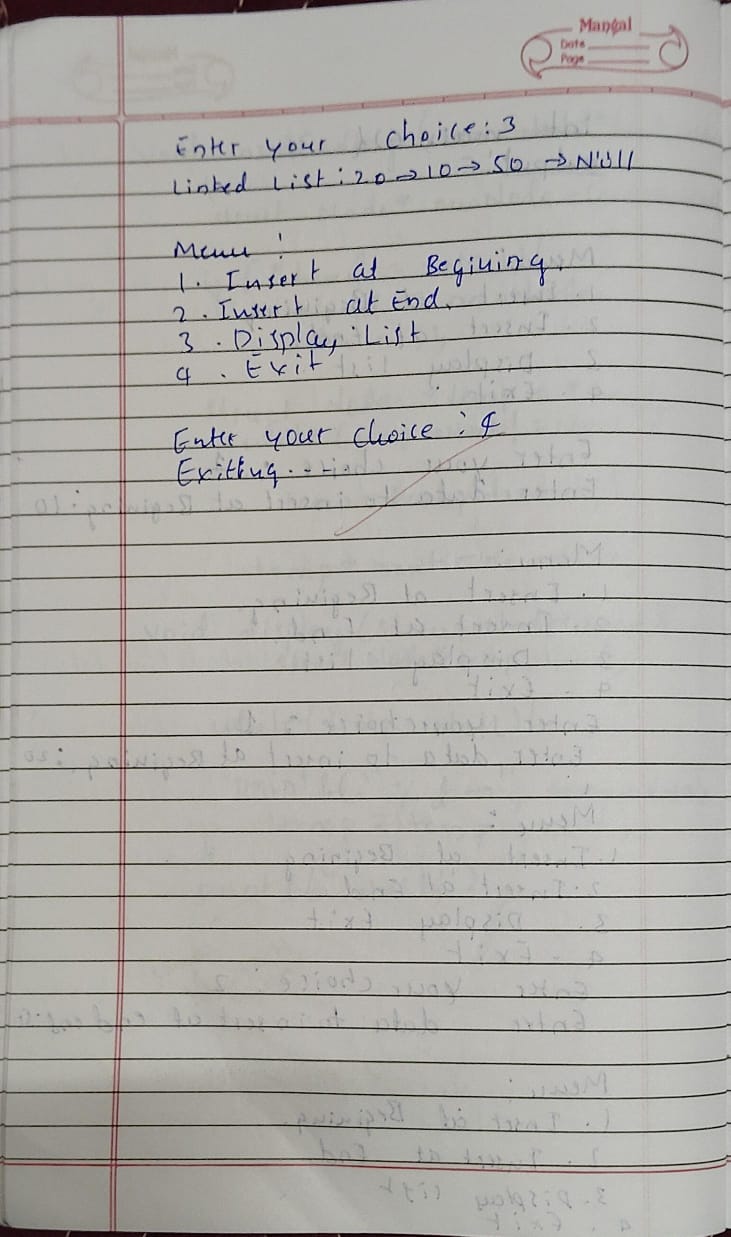 Mangal
Date
Page
Enter your choice: 3
Linked List: 20 → 10 → 50 → Null
Menu :
1. Insert at Begining.
2. Insert at End.
3. Display List
4. Exit
Enter your choice : 4
Exiting....